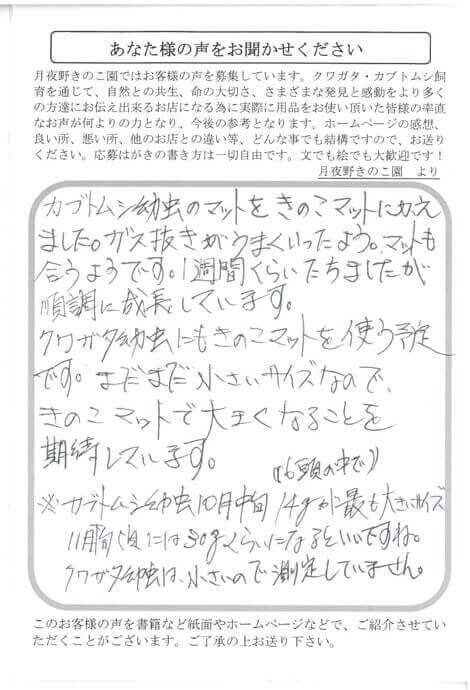 あなた様の声をお聞かせください
月夜野きのこ園ではお客様の声を募集しています。クワガタ・カブトムシ飼
育を通じて、自然との共生、命の大切さ、さまざまな発見と感動をより多く
の方達にお伝え出来るお店になる為に実際に用品をお使い頂いた皆様の率直
なお声が何よりの力となり、今後の参考となります。ホームページの感想、
良い所、悪い所、他のお店との違い等、どんな事でも結構ですので、お送り
ください。応募はがきの書き方は一切自由です。文でも絵でも大歓迎です!
月夜野きのこ園 より
カブトムシ幼虫のマットをきのこマットにかえ
ました。ガス抜きがうまくいったよう。マットも
合うようです。1週間くらいたちましたが
順調に成長しています。
クワガタ幼虫にもきのこマットを使う予定
です。まだまだ小さいサイズなので、
きのこマットで大きくなることを
期待しています。
(16頭の中で)
※カブトムシ幼虫10月中旬 14gが最も大きいサイズ
11月 には30gくらいになるといいですね。
クワガタ幼虫は、小さいので測定していません。
このお客様の声を書籍など紙面やホームページなどで、ご紹介させてい
ただくことがございます。ご了承の上お送り下さい。